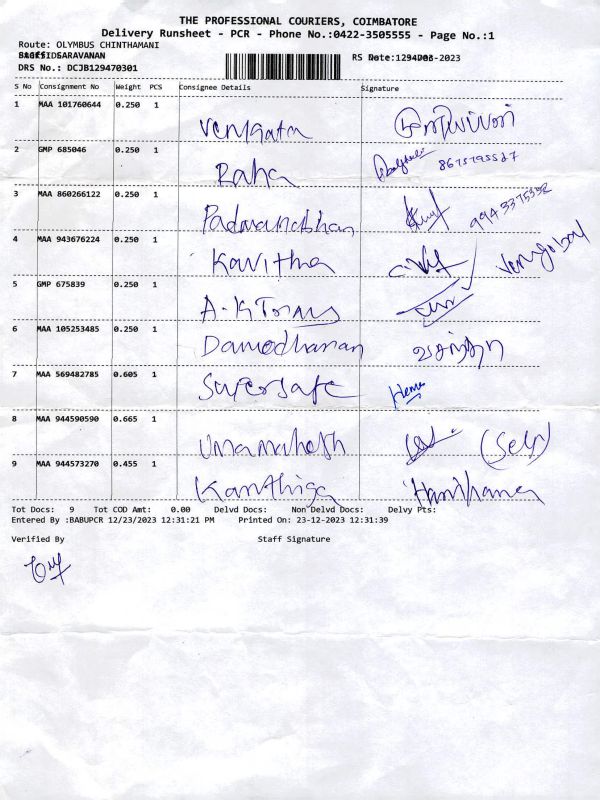 THE PROFESSIONAL COURIERS, COIMBATORE
Delivery Runsheet - PCR - Phone No.:0422-3505555 - Page No.:1
Route: OLYMBUS CHINTHAMANI
SARAVANAN RS -2023
DRS No.: DCJB129470301
S No Consignment No Weight PCS Consignee Details Signature
1 MAA 101760644 0.250 1 Venkata
2 GMP 685046 0.250 1 Raha
3 MAA 860266122 0.250 1 Padmanabhan 9943375332
4 MAA 943676224 0.250 1 Kavitha
5 GMP 675839 0.250 1 A.K Toms
6 MAA 105253485 0.250 1 Damodharan வசந்தா
7 MAA 569482785 0.605 1 Supersafe Hema
8 MAA 944590590 0.665 1 Umamahesh (Self)
9 MAA 944573270 0.455 1 Karthiga
Tot Docs: 9 Tot COD Amt: 0.00 Delvd Docs: Non Delvd Docs: Delvy Pts:
Entered By :BABUPCR 12/23/2023 12:31:21 PM Printed On: 23-12-2023 12:31:39
Verified By Staff Signature